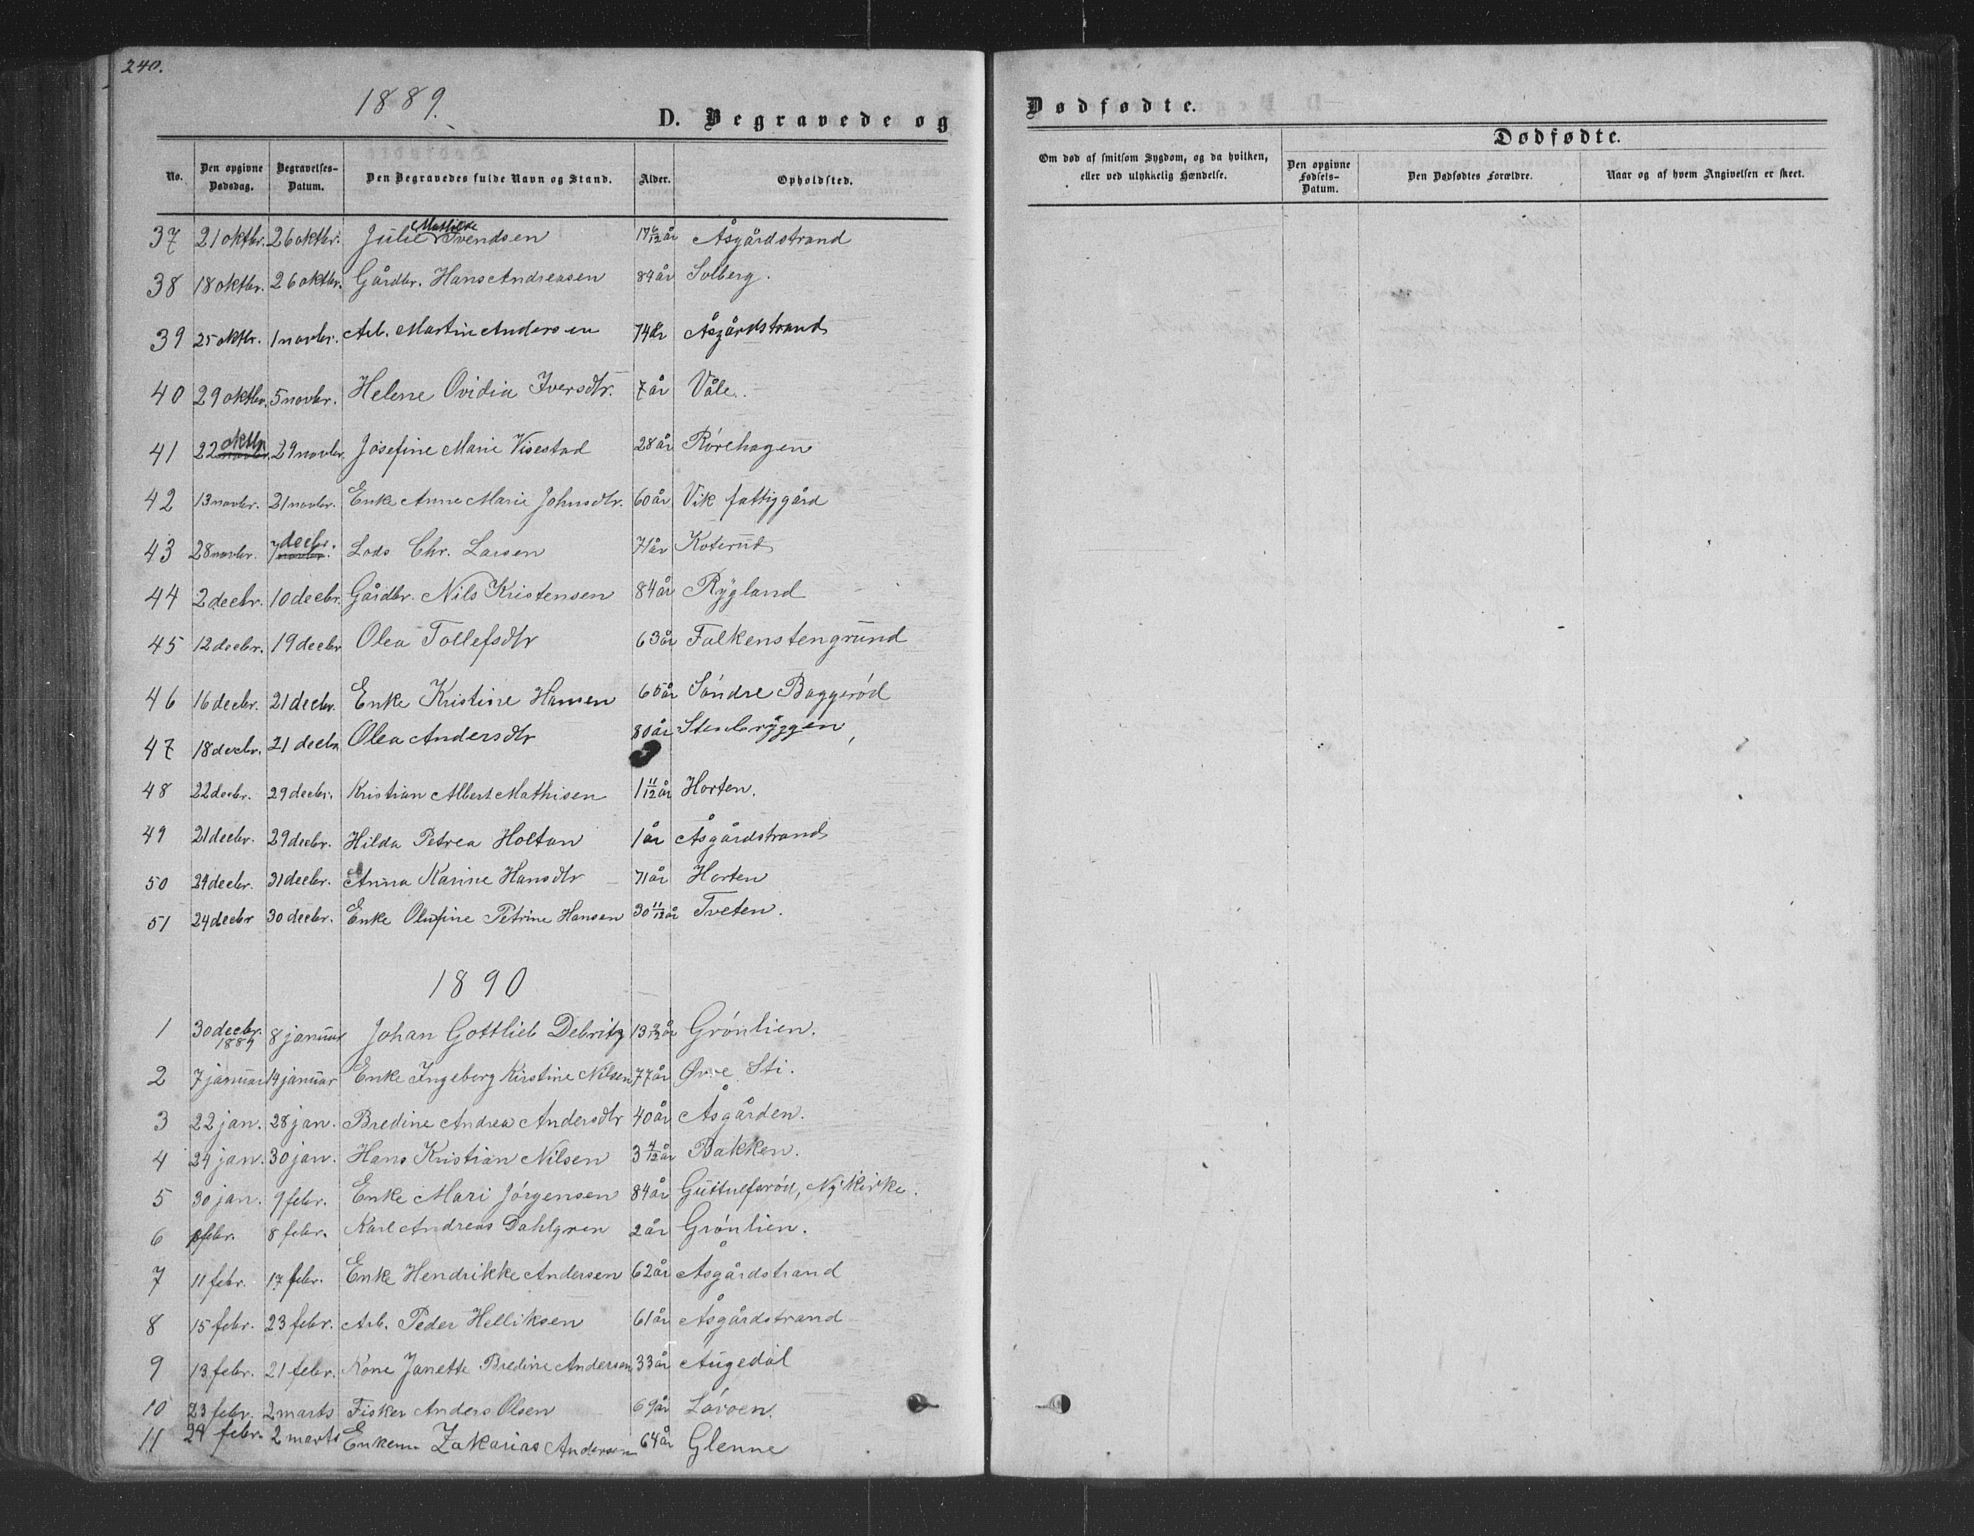 240.
1889.
D. Begravede og
No. Den opgivne Dødsdag. Begravelses-Datum. Den Begravedes fulde Navn og Stand. Alder. Opholdsted.
37 21 oktbr. 26 oktbr. Julie Mathilde Svendsen 17 6/12 år Åsgårdstrand
38 18 oktbr. 26 oktbr. Gårdbr. Hans Andreasen 84 år Solberg.
39 25 oktbr. 1 novbr. Arb. Martin Andersen 74 år Åsgårdstrand
40 29 oktbr. 5 novbr. Helene Ovidia Iversdtr. 7 år Våle.
41 22 oktbr. novbr. 29 novbr. Josefine Marie Visestad 28 år Rørehagen
42 13 novbr. 21 novbr. Enke Anne Marie Johnsdtr. 60 år Vik fattiggård
43 28 novbr. 7 decbr. novbr. Lods Chr. Larsen 71 år Koterud
44 2 decbr. 10 decbr. Gårdbr. Nils Kristensen 84 år Rygland
45 12 decbr. 19 decbr Olea Tollefsdtr 63 år Falkenstengrund
46 16 decbr. 21 decbr. Enke Kristine Hansen 65 år Søndre Baggerød
47 18 decbr. 21 decbr Olea Andersdtr 80 år Stenbryggen
48 22 decbr. 29 decbr. Kristian Albert Mathisen 1 11/12 år Horten.
49 21 decbr. 29 decbr. Hilda Petrea Holtan 1 år Åsgårdstrand
50 24 decbr. 31 decbr. Anna Karine Hansdtr 71 år Horten
51 24 decbr 30 decbr. Enke Olufine Petrine Hansen 30 11/12 år Tveten.
1890
1 30 decbr. 1889 8 januar Johan Gottlieb Debritz 13 år Grønlien.
2 7 januar 14 januar Enke Ingeborg Kirstine Nilsen 77 år Øvre Sti.
3 22 jan. 28 jan. Bredine Andrea Andersdtr 40 år Åsgården.
4 24 jan. 30 jan. Hans Kristian Nilsen 3 4/12 år Bakken.
5 30 jan. 9 febr. Enke Mari Jørgensen 84 år Guttulfsrød, Nykirke.
6 febr. 8 febr. Karl Andreas Dahlgren 2 år Grønlien.
7 11 febr. 17 febr. Enke Hendrikke Andersen 62 år Åsgårdstrand
8 15 febr. 23 febr. Arb. Peder Helliksen 61 år Åsgårdstrand
9 13 febr. 21 febr. Kone Janette Bredine Andersen 33 år Augedal
10 23 febr. 2 marts Fisker Anders Olsen 69 år Løvøen.
11 24 febr. 2 marts Enkem. Zakarias Andersen 64 år Glenne
Dødfødte.
Dødfødte.
Om død af smitsom Sygdom, og da hvilken, eller ved ulykkelig Hændelse. Den opgivne Fødsels-Datum. Den Dødfødtes Forældre. Naar og af hvem Angivelsen er skeet.